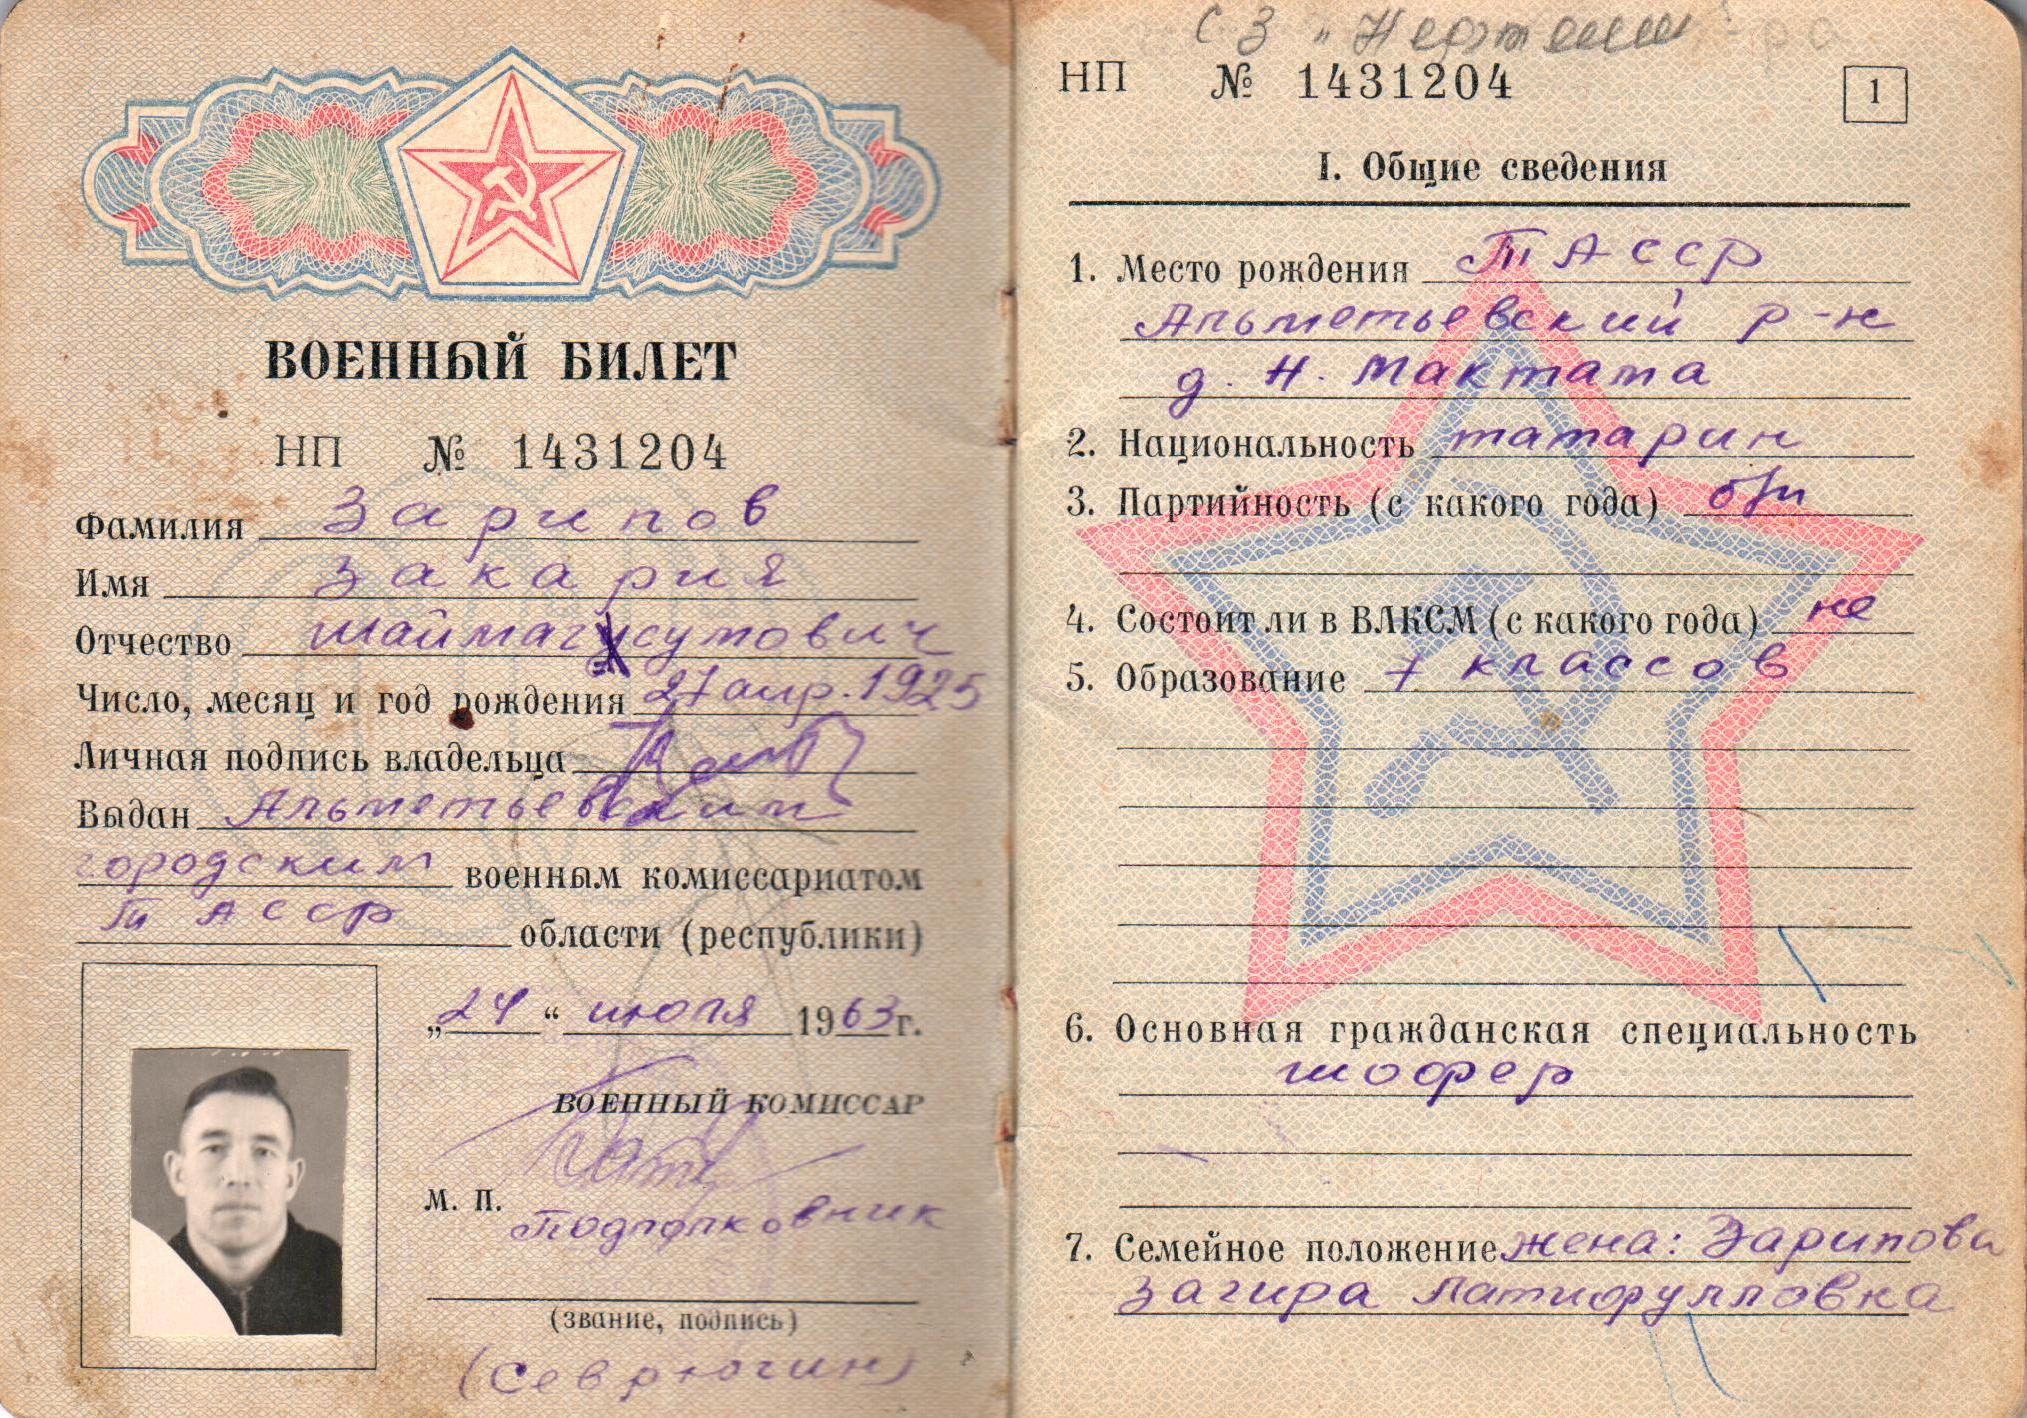 ВОЕННЫЙ БИЛЕТ
НП № 1431204
Фамилия Зарипов
Имя Закария
Отчество Шаймагсутович
Число, месяц и год рождения 27 апр. 1925
Личная подпись владельца
Выдан Альметьевским
городским военным комиссариатом
ТАССР области (республики)
„24“ июля 1963 г.
ВОЕННЫЙ КОМИССАР
М. П. Подполковник
(звание, подпись)
(Севрюгин)
СЗ „
НП № 1431204
1
I. Общие сведения
1. Место рождения ТАССР
Альметьевский р-н
д. Н. Мактама
2. Национальность татарин
3. Партийность (с какого года) б/п
4. Состоит ли в ВЛКСМ (с какого года) не
5. Образование 7 классов
6. Основная гражданская специальность
шофер
7. Семейное положение жена: Зарипова
Загира Латифулловна